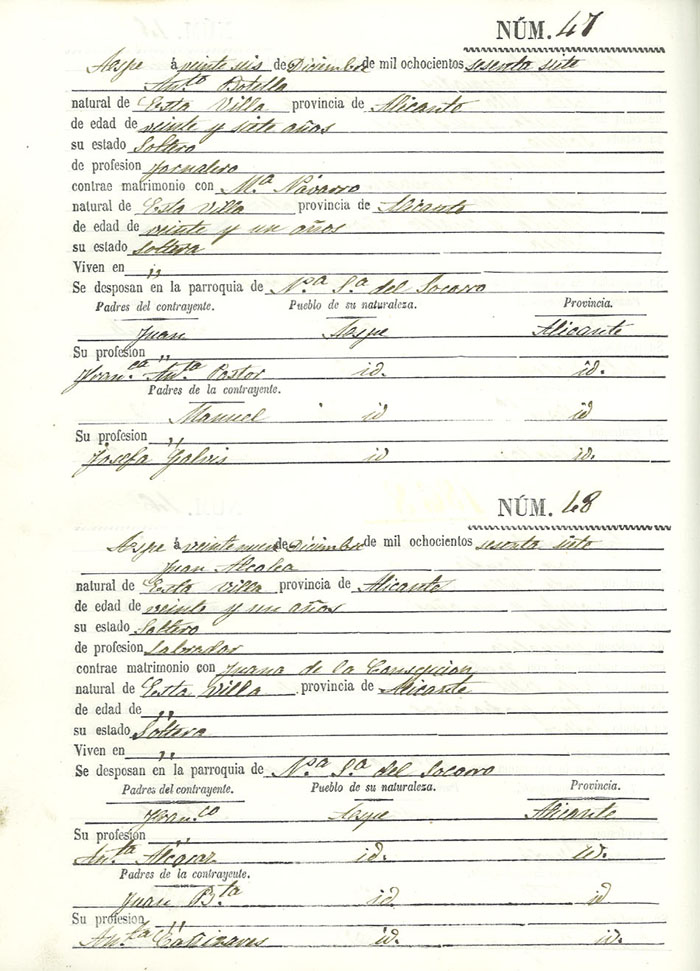 NÚM. 47
Aspe á veinte seis de Diciembre de mil ochocientos sesenta siete
Ant.º Botella
natural de Esta Villa provincia de Alicante
de edad de veinte y siete años
su estado Soltero
de profesion Jornalero
contrae matrimonio con M.ª Navarro
natural de Esta Villa provincia de Alicante
de edad de veinte y un años
su estado Soltera
Viven en ,,
Se desposan en la parroquia de N.ª S.ª del Socorro
Padres del contrayente. Pueblo de su naturaleza. Provincia.
Juan Aspe Alicante
Su profesion ,,
Fran.ca Ant.ª Pastor id. id.
Padres de la contrayente.
Manuel id id
Su profesion ,,
Josefa Galvis id id.
NÚM. 48
Aspe á veinte nueve de Diciembre de mil ochocientos sesenta siete
Juan Alcolea
natural de Esta Villa provincia de Alicante
de edad de veinte y un años
su estado Soltero
de profesion Labrador
contrae matrimonio con Juana de la
natural de Esta Villa provincia de Alicante
de edad de ,,
su estado Soltera
Viven en ,,
Se desposan en la parroquia de N.ª S.ª del Socorro
Padres del contrayente. Pueblo de su naturaleza. Provincia.
Fran.co Aspe Alicante
Su profesion ,,
Ant.ª id. id.
Padres de la contrayente.
Juan B.ta id. id
Su profesion ,,
Ant.ª id. id.